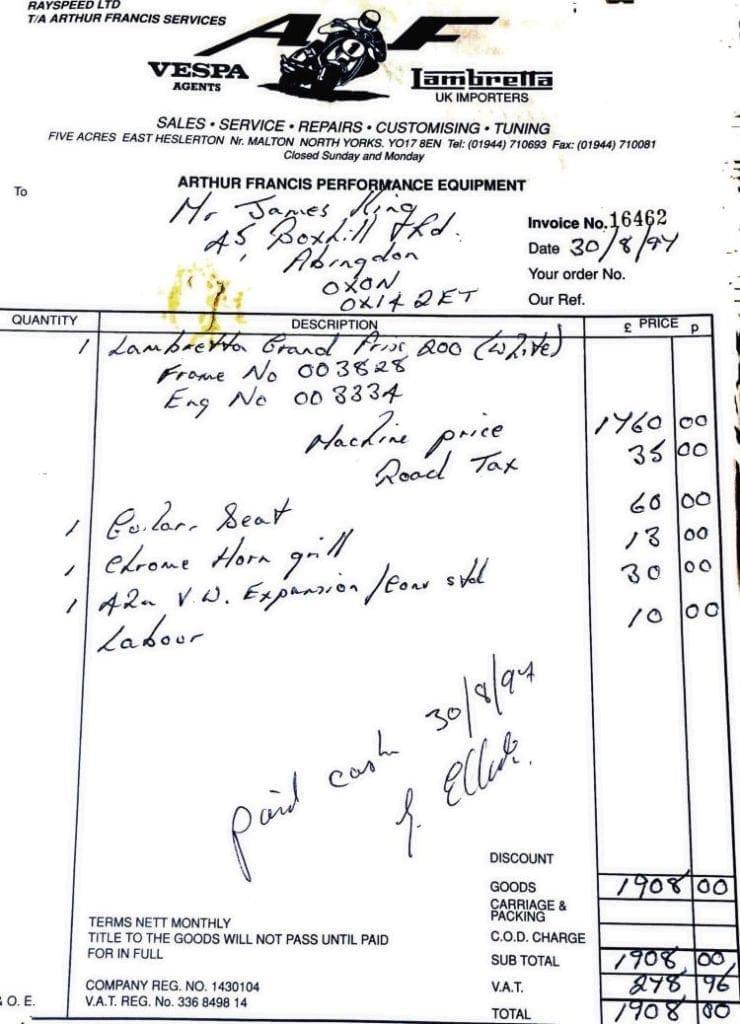 RAYSPEED LTD
T/A ARTHUR FRANCIS SERVICES
AF
1
VESPA
AGENTS
Lambretta
UK IMPORTERS
SALES • SERVICE • REPAIRS • CUSTOMISING • TUNING
FIVE ACRES EAST HESLERTON Nr. MALTON NORTH YORKS. YO17 8EN Tel: (01944) 710693 Fax: (01944) 710081
Closed Sunday and Monday
ARTHUR FRANCIS PERFORMANCE EQUIPMENT
To
Mr James King
45, Boxhill Rd.
Abingdon
OXON
OX14 2ET
Invoice No. 16462
Date 30/8/97
Your order No.
Our Ref.
QUANTITY DESCRIPTION £ PRICE p
1 Lambretta Grand Prix 200 (white)
Frame No 003828
Eng No 003334
Machine price 1760 00
Road Tax 35 00
1 Seat 60 00
1 Chrome Horn grill 13 00
1 V.W. Expansion 30 00
Labour 10 00
paid cash 30/8/97
DISCOUNT
GOODS 1908 00
CARRIAGE &
PACKING
C.O.D. CHARGE
SUB TOTAL 1908 00
V.A.T. 278 96
TOTAL 1908 00
TERMS NETT MONTHLY
TITLE TO THE GOODS WILL NOT PASS UNTIL PAID
FOR IN FULL
COMPANY REG. NO. 1430104
V.A.T. REG. No. 336 8498 14
& O. E.